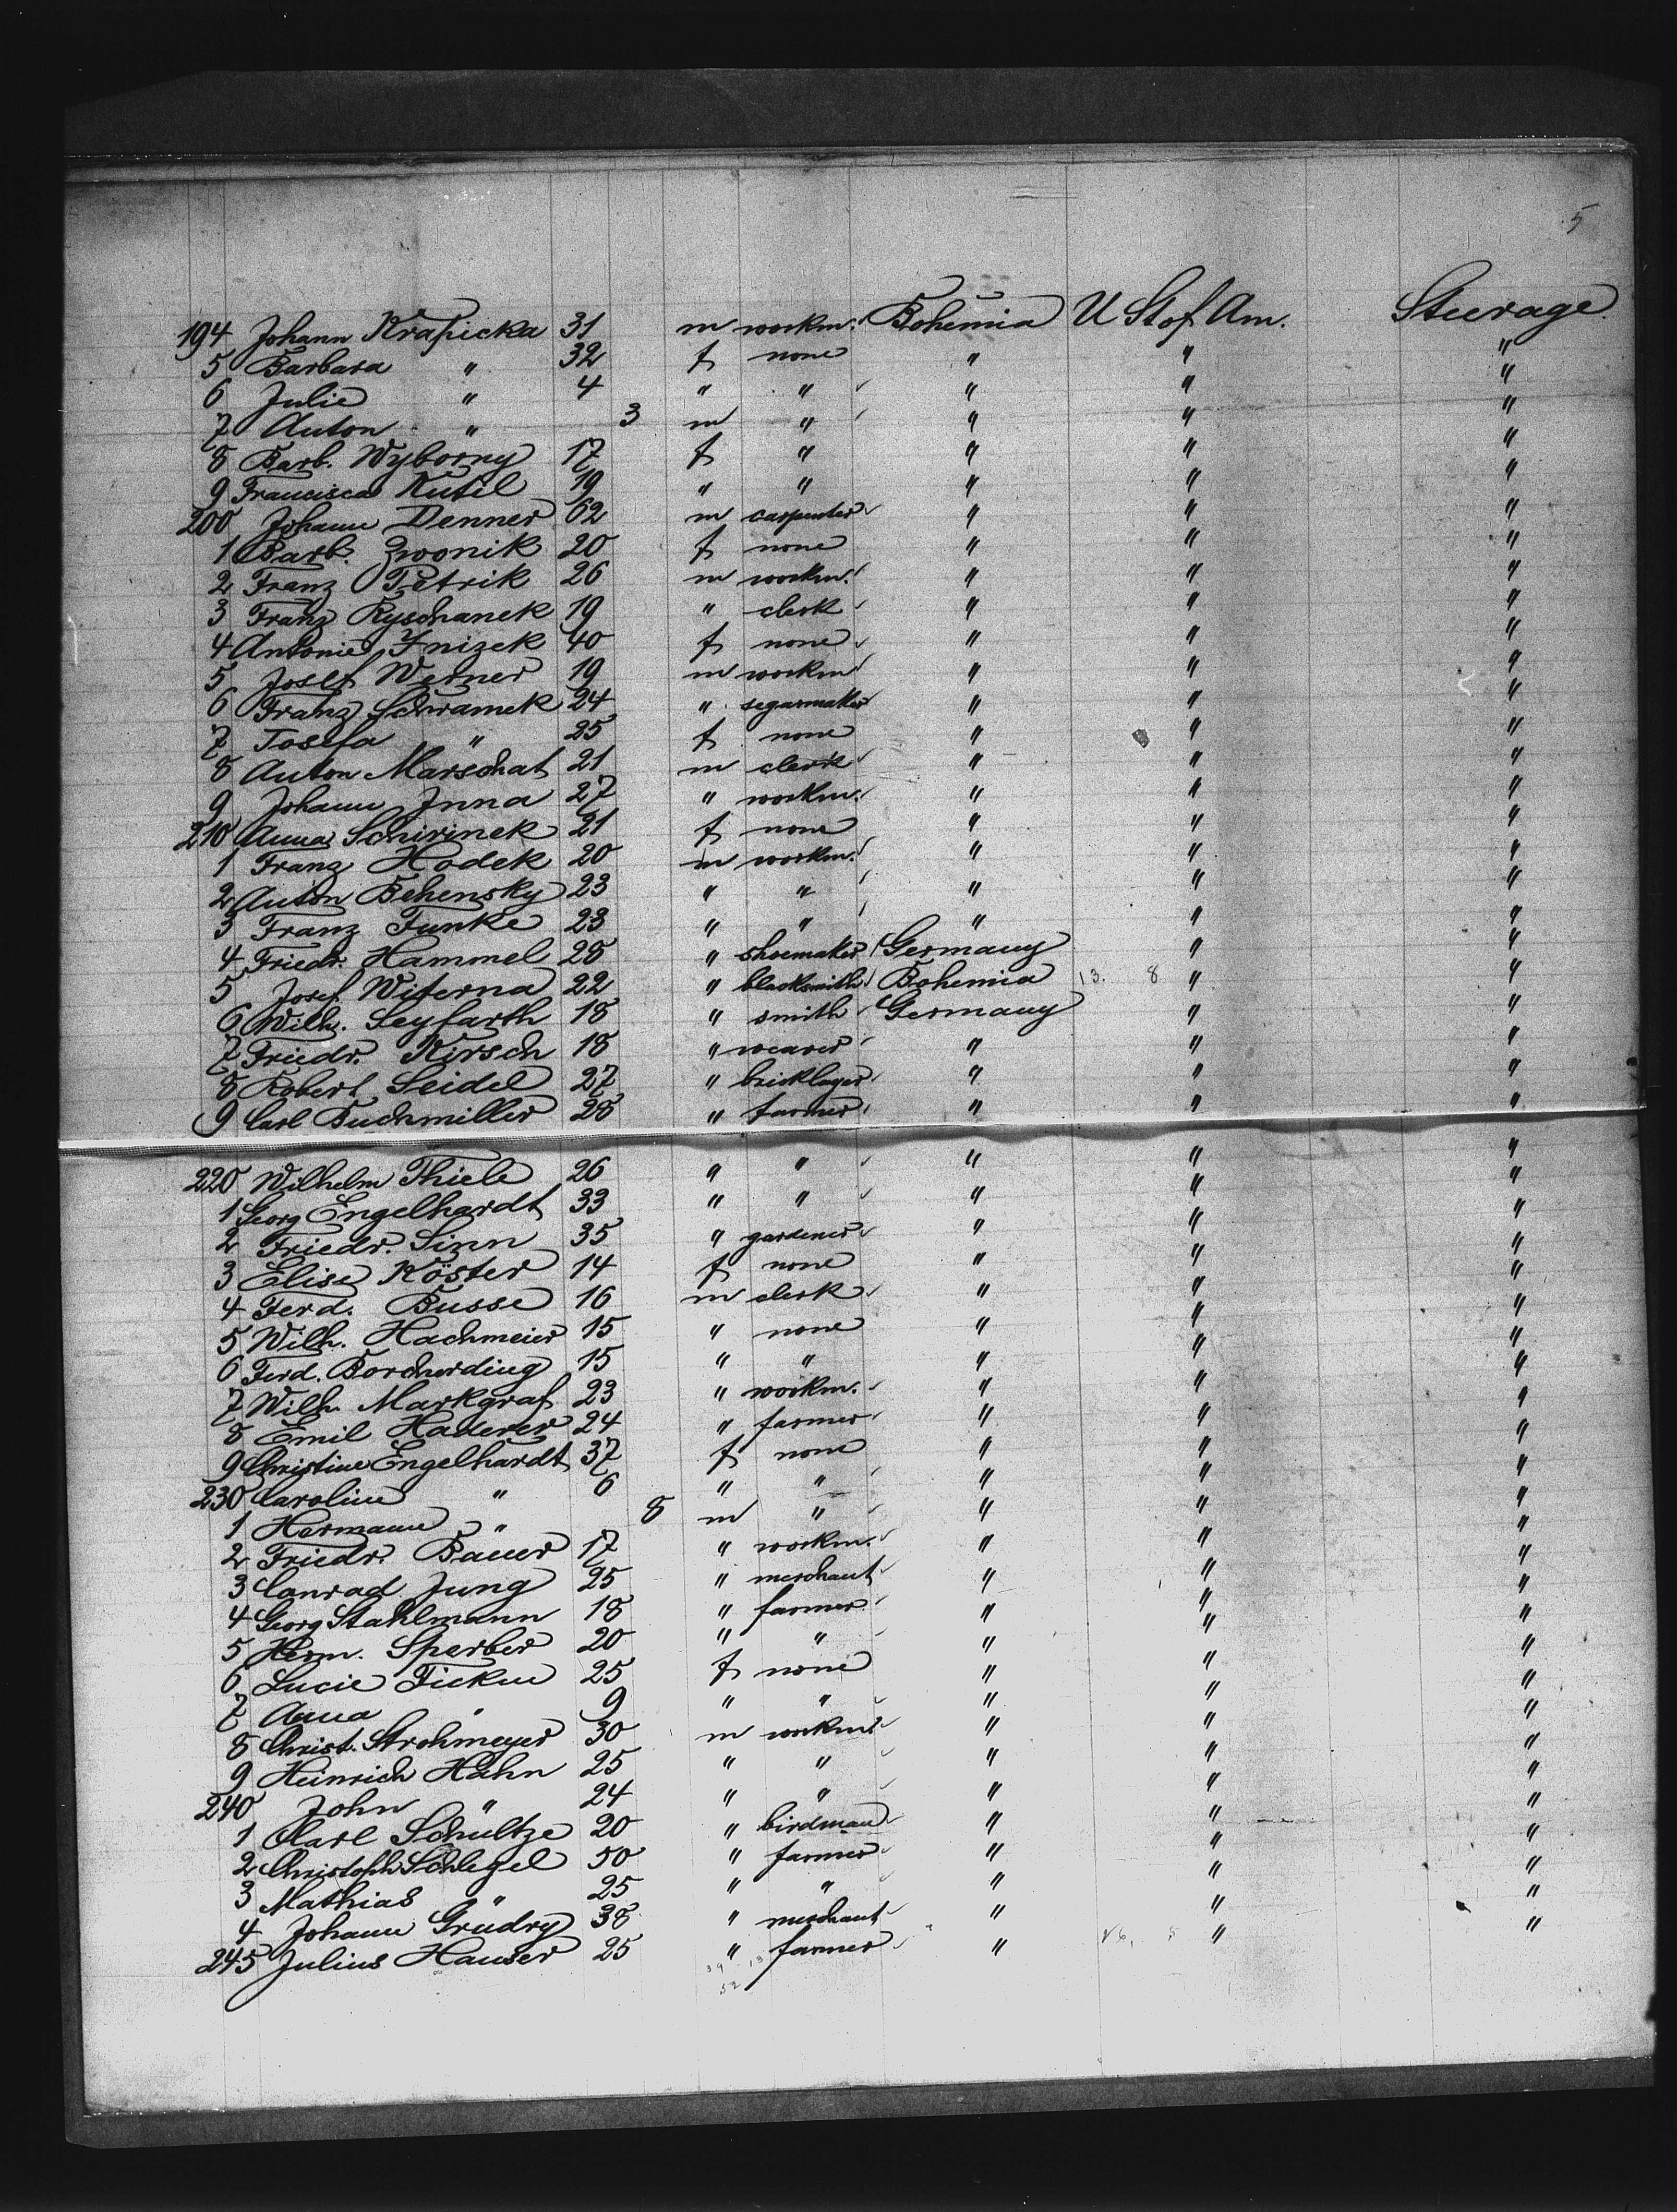 5
194 Johann Krapicka 31 m workm. Bohemia U St of Am. Steerage.
5 Barbara " 32 f none " " "
6 Julie " 4 " " " " "
7 Anton " 3 m " " " "
8 Barb. Wyborny 17 f " " " "
9 Francisca Kutil 19 " " " " "
200 Johann Denner 62 m carpenter " " "
1 Barb. Zwonik 20 f none " " "
2 Franz Petrik 26 m workm. " " "
3 Franz Ryschanek 19 " clerk " " "
4 Antonie Jnizek 40 f none " " "
5 Josef Werner 19 m workm " " "
6 Franz Schramek 24 " segarmaker " " "
7 Josefa " 25 f none " " "
8 Anton Marschat 21 m clerk " " "
9 Johann Jnna 27 " workm. " " "
210 Anna Schirinek 21 f none " " "
1 Franz Hodek 20 m workm. " " "
2 Anton Behensky 23 " " " " "
3 Franz Funke 23 " " " " "
4 Friedr. Hammel 28 " shoemaker Germany " "
5 Josef Witerna 22 " blacksmith Bohemia 13. 8 " "
6 Wilh. Seyfarth 18 " smith Germany " "
7 Friedr. Kirsch 18 " weaver " " "
8 Robert Seidel 27 " bricklayer " " "
9 Carl Buchmiller 28 " farmer " " "
220 Wilhelm Thiele 26 " " " " "
1 Georg Engelhardt 33 " " " " "
2 Friedr. Sinn 35 " gardener " " "
3 Elise Köster 14 f none " " "
4 Ferd. Busse 16 m clerk " " "
5 Wilh. Hachmeier 15 " none " " "
6 Ferd. Borcherding 15 " " " " "
7 Wilh. Markgraf 23 " workm. " " "
8 Emil Haderer 24 " farmer " " "
9 Christine Engelhardt 37 f none " " "
230 Caroline " 6 " " " " "
1 Hermann " 8 m " " " "
2 Friedr. Bauer 17 " workm. " " "
3 Conrad Jung 25 " merchant " " "
4 Georg Stahlmann 18 " farmer " " "
5 Herm. Sperber 20 " " " " "
6 Lucie Ficken 25 f none " " "
7 Anna " 9 " " " " "
8 Christ. Strohmeyer 30 m workm. " " "
9 Heinrich Hahn 25 " " " " "
240 John " 24 " " " " "
1 Carl Schultze 20 " birdman " " "
2 Christoph Schlegel 50 " farmer " " "
3 Mathias " 25 " " " " "
4 Johann Grudry 38 " merchant " " "
245 Julius Hauser 25 " farmer " " "